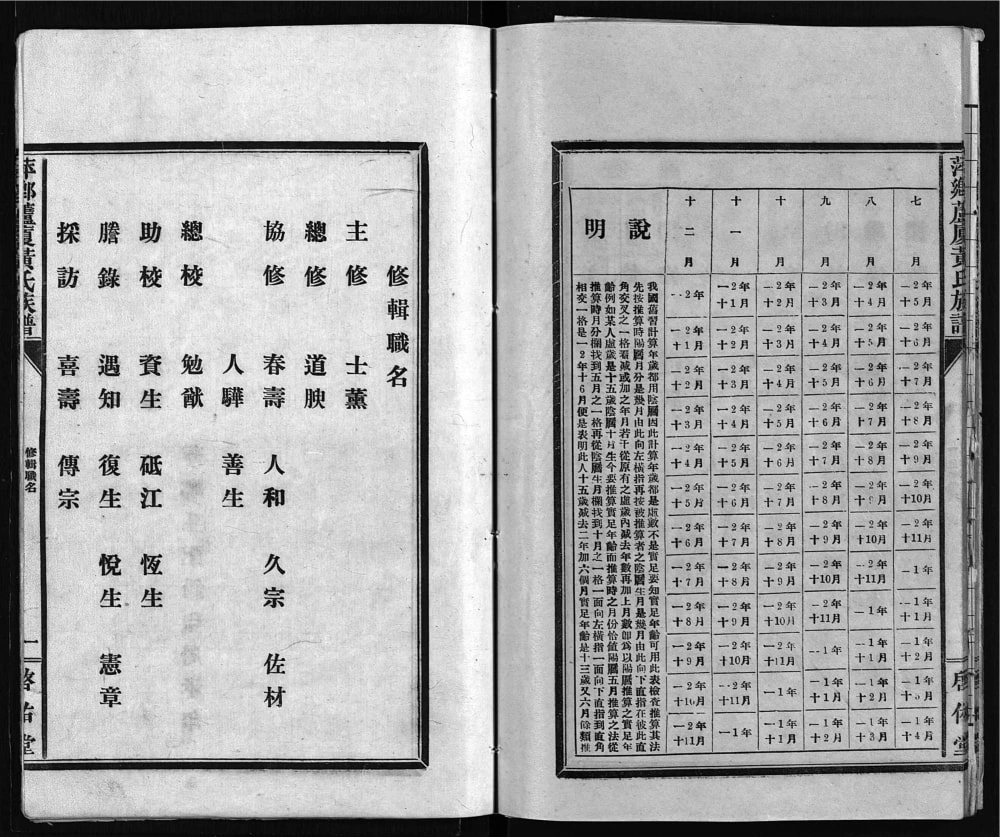 萍鄉蘆廈黃氏族譜
啓佑堂
七月
−2年+5月
−2年+6月
−2年+7月
−2年+8月
−2年+9月
−2年+10月
−2年+11月
−1年
−1年+1月
−1年+2月
−1年+3月
−1年+4月
八月
−2年+4月
−2年+5月
−2年+6月
−2年+7月
−2年+8月
−2年+9月
−2年+10月
−2年+11月
−1年
−1年+1月
−1年+2月
−1年+3月
九月
−2年+3月
−2年+4月
−2年+5月
−2年+6月
−2年+7月
−2年+8月
−2年+9月
−2年+10月
−2年+11月
−1年
−1年+1月
−1年+2月
十月
−2年+2月
−2年+3月
−2年+4月
−2年+5月
−2年+6月
−2年+7月
−2年+8月
−2年+9月
−2年+10月
−2年+11月
−1年
−1年+1月
十一月
−2年+1月
−2年+2月
−2年+3月
−2年+4月
−2年+5月
−2年+6月
−2年+7月
−2年+8月
−2年+9月
−2年+10月
−2年+11月
−1年
十二月
−2年
−2年+1月
−2年+2月
−2年+3月
−2年+4月
−2年+5月
−2年+6月
−2年+7月
−2年+8月
−2年+9月
−2年+10月
−2年+11月
說明
我國舊習計算年歲都用陰曆因此計算年歲都是虛數不是實足要知實足年齡可用此表檢查推算其法
先按推算時陽曆月分是幾月由此向左橫指再按被推算者之陰曆生月是幾月由此向下直指在彼此直
角交叉之一格看減或加之年月若干從原有之虛歲內減去年數再加上月數卽為以陽曆推算之實足年
齡例如某人虛歲是十五歲陰曆十月生今要推算實足年齡而推算時之月份恰值陽曆五月推算之法從
推算時月分欄找到五月之一格再從陰曆生月欄找到十月之一格一面向左橫指一面向下直指到直角
相交一格是−2年+6月便是表明此人十五歲減去二年加六個月實足年齡是十三歲又六月餘類推
修輯職名
主修 士薰
總修 道腴
協修 春壽 人和 久宗 佐材
人驊 善生
總校 勉猷
助校 資生 砥江 恆生
謄錄 遇知 復生 悅生 憲章
採訪 喜壽 傳宗
萍鄉蘆廈黃氏族譜
修輯職名
一
啓佑堂